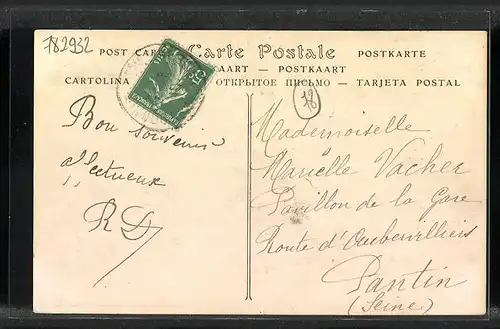 782932
POST CARD Carte Postale POSTKARTE
POSTKAART
CARTOLINA ОТКРЫТОЕ ПИСЬМО — TARJETA POSTAL
78
Bon souvenir
RD
Mademoiselle
Marielle Vacher
Pavillon de la Gare
Route d'Aubervilliers
Pantin
(Seine)